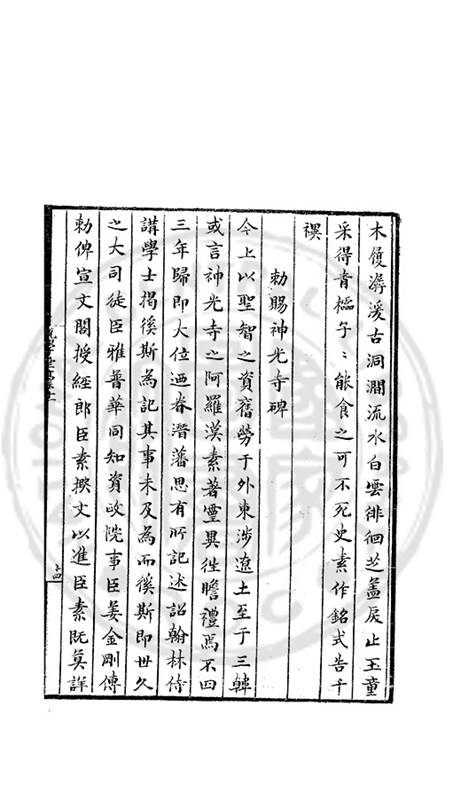 木履潺湲古洞澗流水白雲徘徊芝蓋戾止玉童
采得青樞子〻能食之可不死史素作銘式告千
禩
勑賜神光寺碑
今上以聖智之資舊勞于外東涉遼土至于三韓
或言神光寺之阿羅漢素著靈異徃瞻禮焉不四
三年歸即大位迺眷潛藩思有所記述詔翰林侍
講學士揭徯斯為記其事未及為而徯斯即世久
之大司徒臣雅普華同知資政院事臣姜金剛傳
勑俾宣文閣授經郎臣素撰文以進臣素既莫詳
十四